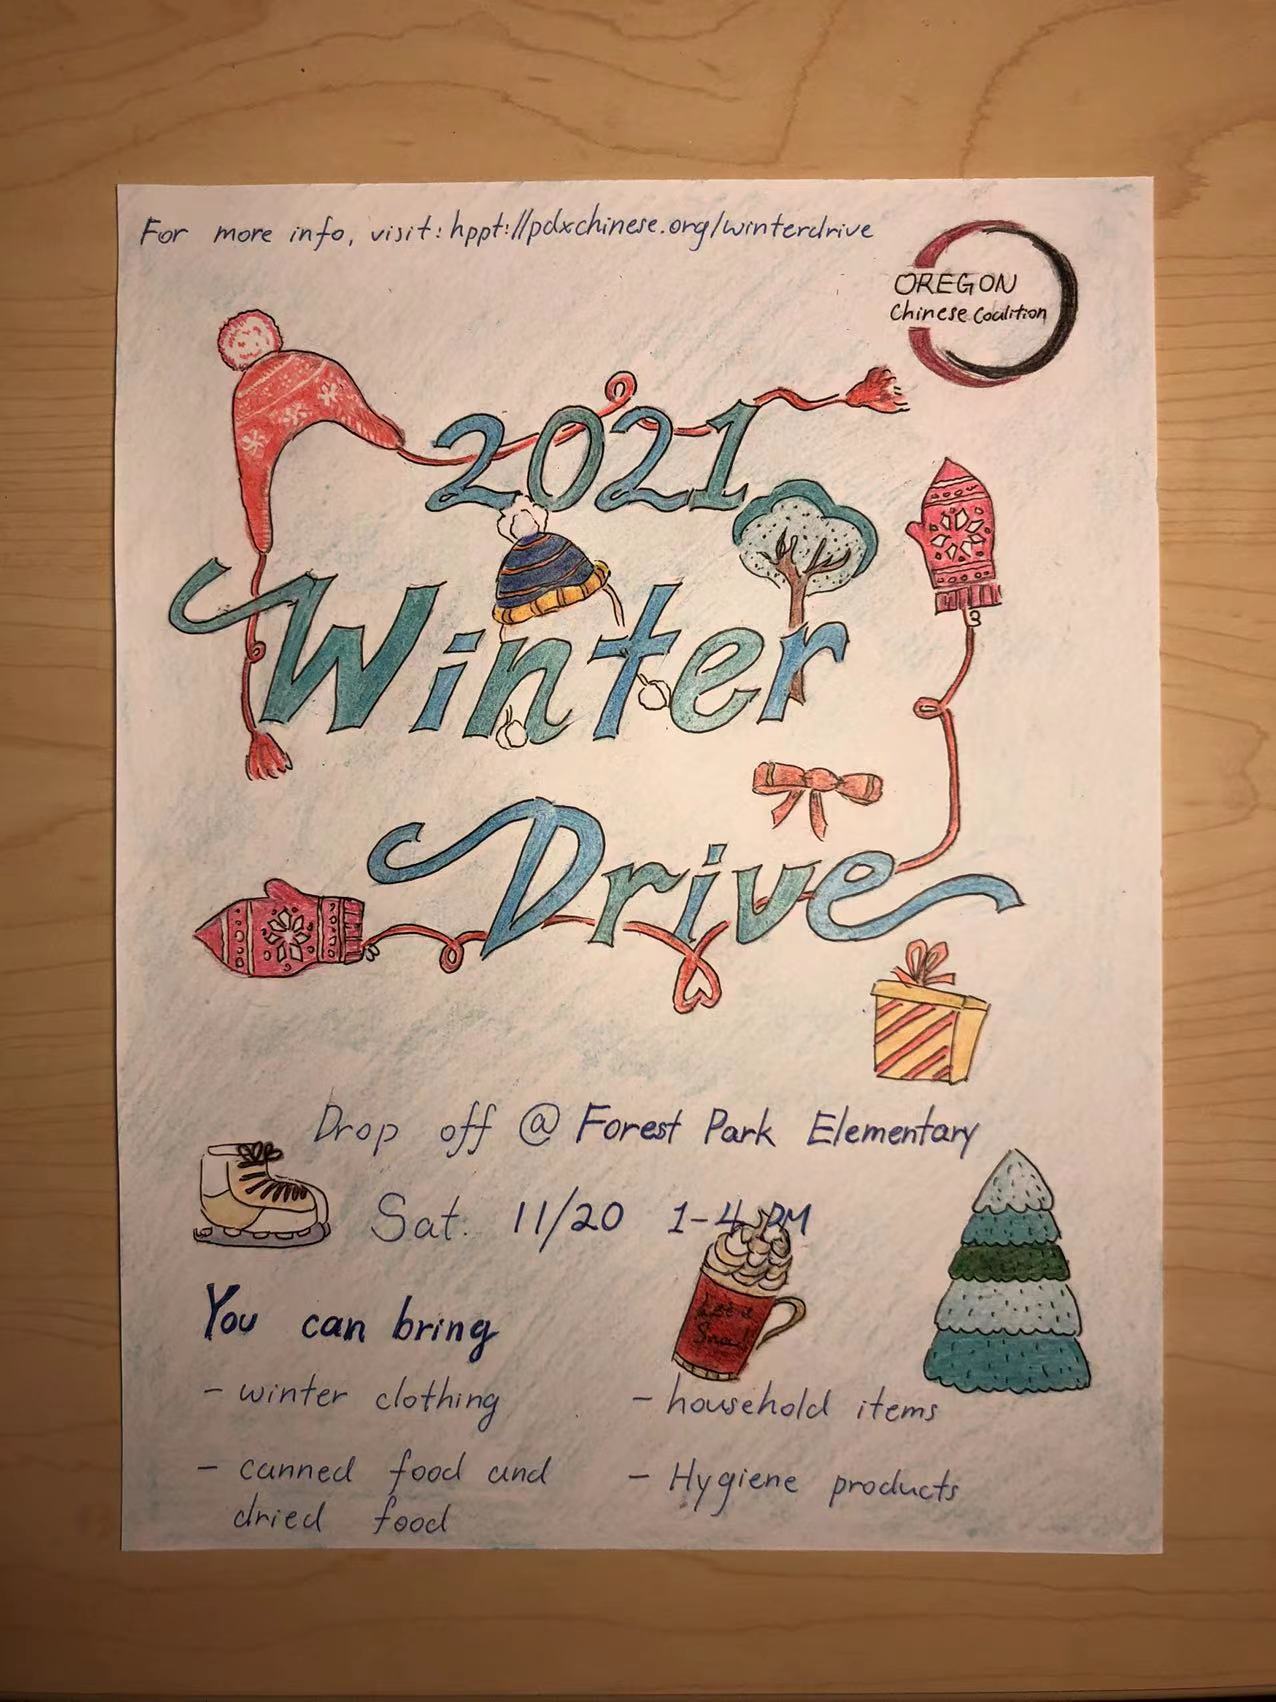 For more info, visit: hppt://pdxchinese.org/winterdrive
OREGON
Chinese Coalition
2021
Winter
Drive
Drop off @ Forest Park Elementary
Sat. 11/20 1-4 PM
Let it
Snow!
You can bring
- winter clothing
- canned food and
dried food
- household items
- Hygiene products